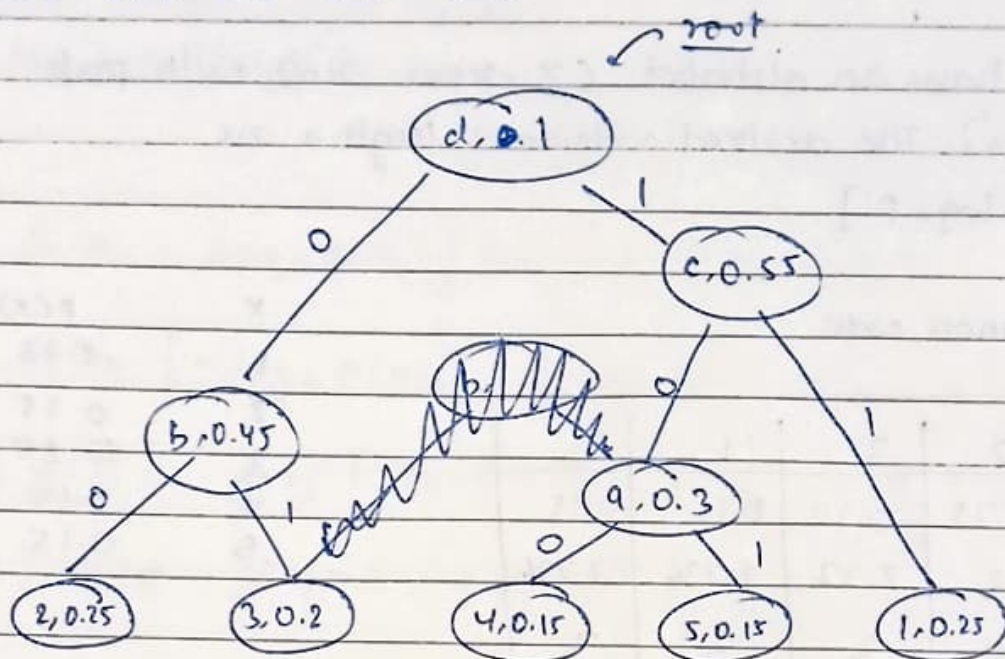 root
d, 0.1
0
1
c, 0.55
b, 0.45
0
1
0
1
a, 0.3
0
1
2, 0.25
3, 0.2
4, 0.15
5, 0.15
1, 0.25